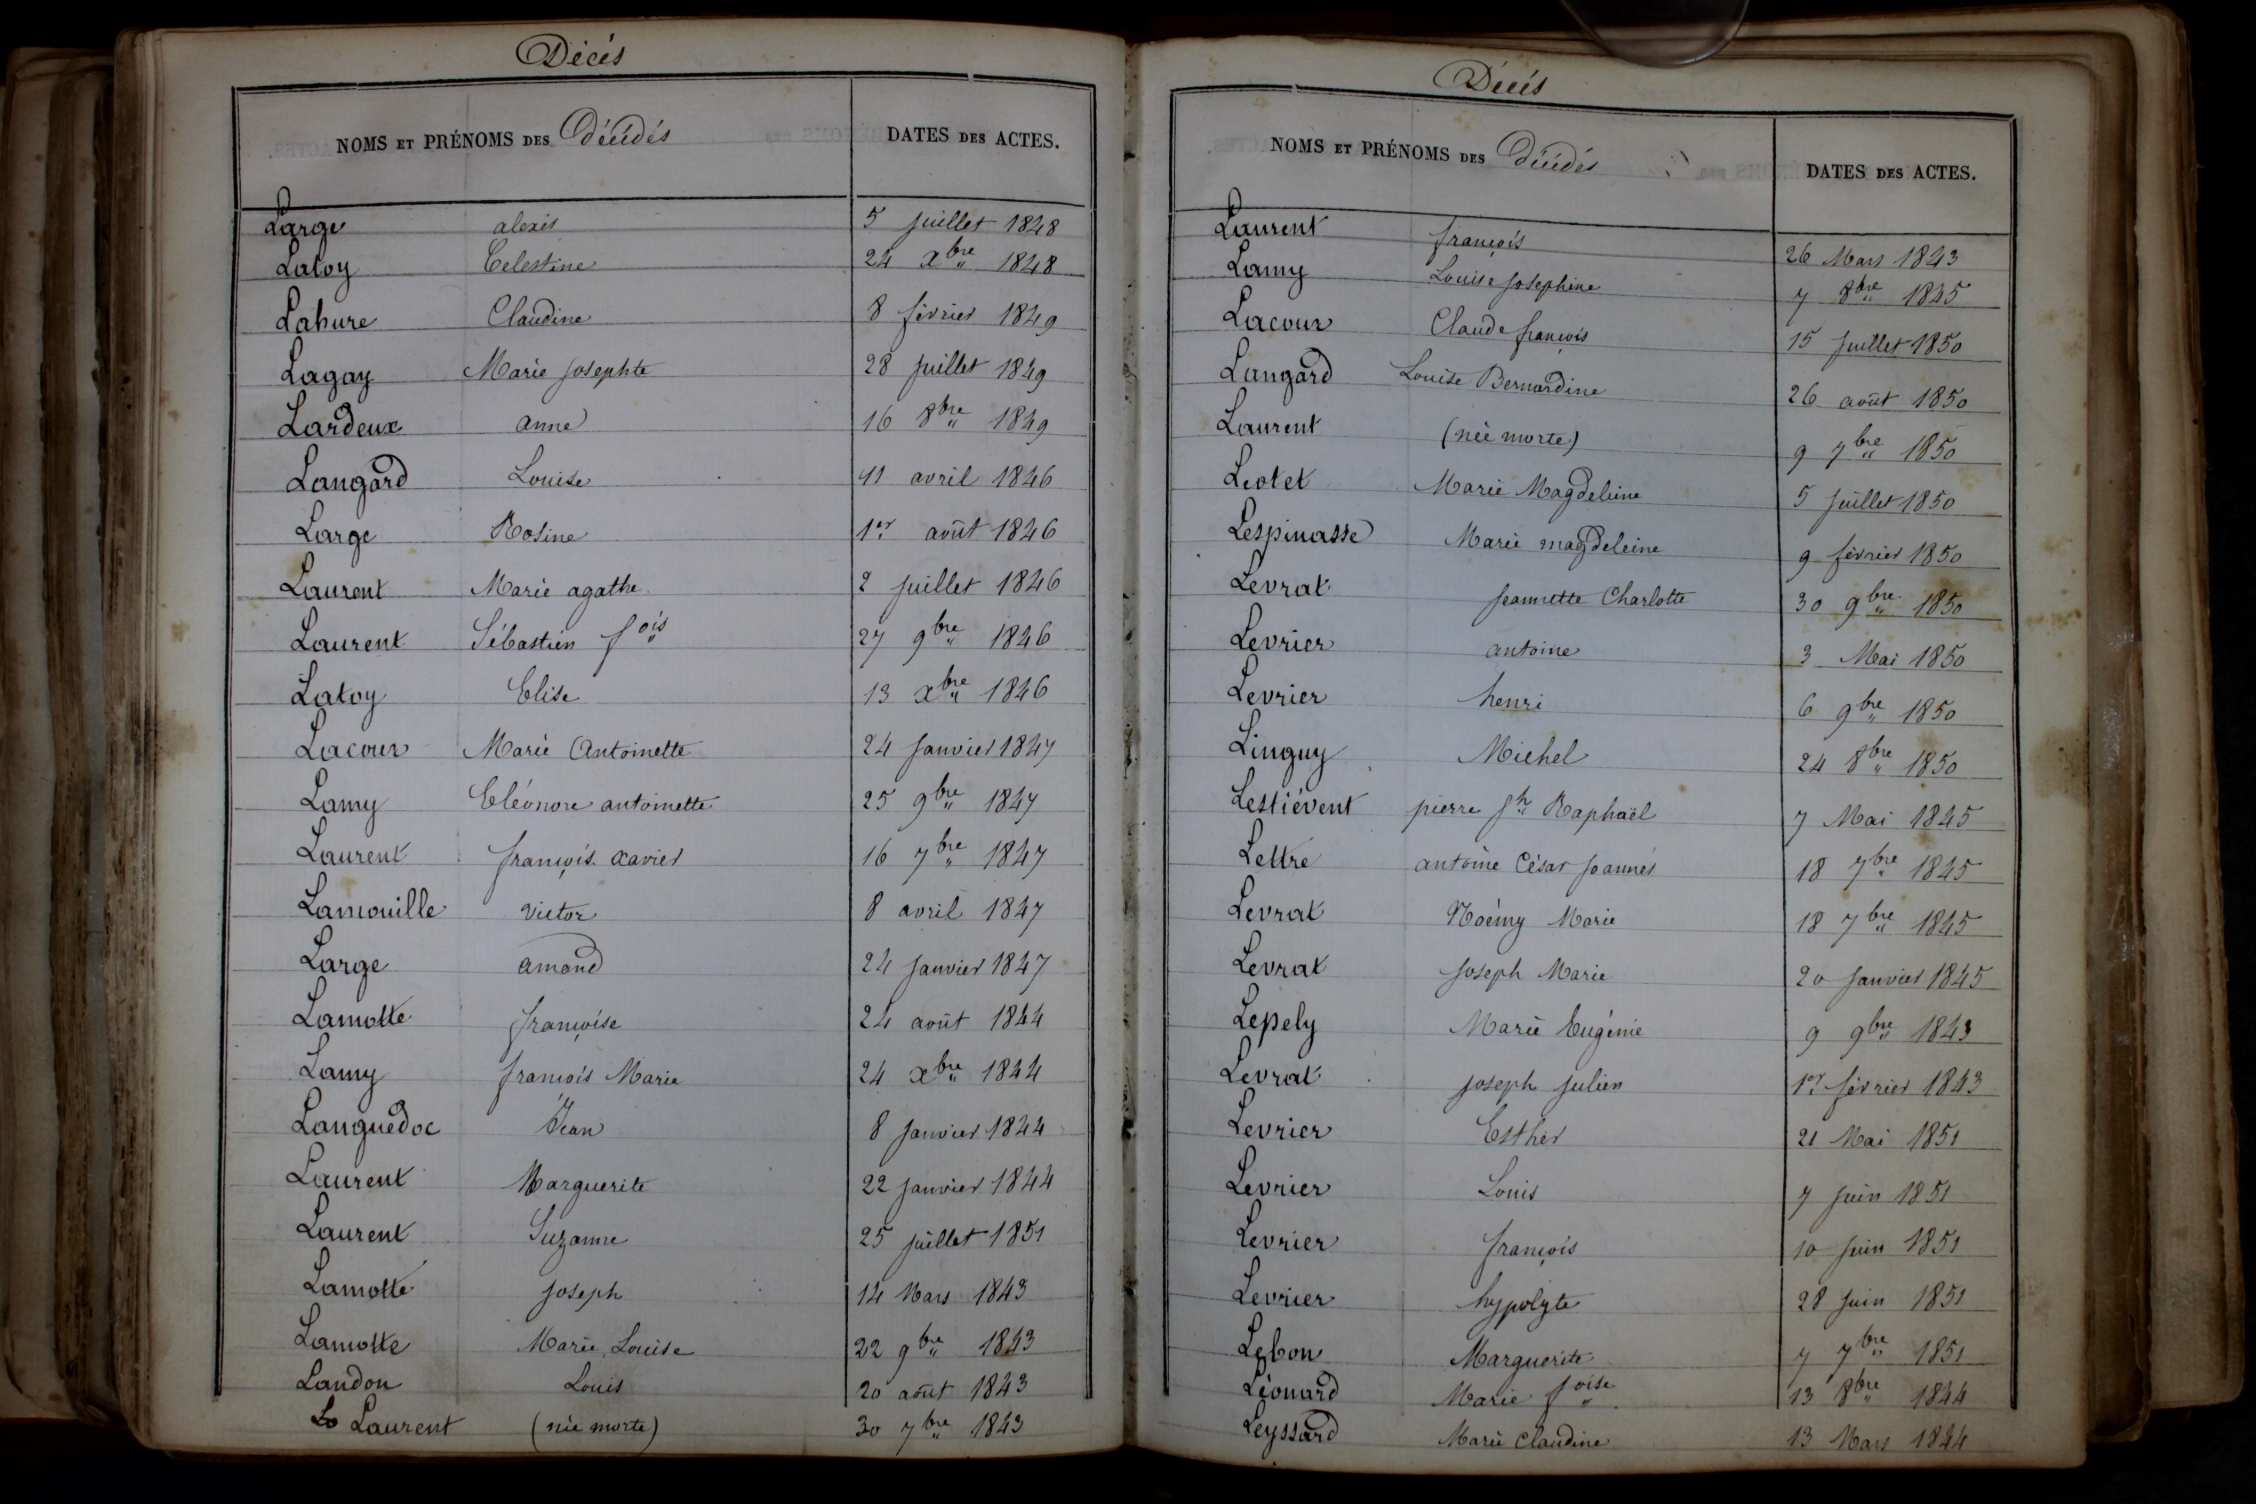 Décés
NOMS ET PRÉNOMS DES Décédés DATES DES ACTES.
Large alexis 5 juillet 1848
Latoy Celestine 24 Xbre 1848
Lahure Claudine 8 février 1849
Lagay Marie josephte 28 juillet 1849
Lardeux anne 16 8bre 1849
Langard Louise 11 avril 1846
Large Rosine 1er août 1846
Laurent Marie agathe 2 juillet 1846
Laurent Sébastien fois 27 9bre 1846
Latoy Elise 13 xbre 1846
Lacour Marie Antoinette 24 janvier 1847
Lamy Eléonore antoinette 25 9bre 1847
Laurent françois xavier 16 7bre 1847
Lamouille victor 8 avril 1847
Large amand 24 janvier 1847
Lamotte françoise 24 août 1844
Lamy françois Marie 24 xbre 1844
Languedoc Jean 8 janvier 1844
Laurent Marguerite 22 janvier 1844
Laurent Suzanne 25 juillet 1851
Lamotte joseph 14 Mars 1843
Lamotte Marie Louise 22 9bre 1843
Landon Louis 20 août 1843
Laurent (née morte) 30 7bre 1843
Décés
NOMS ET PRÉNOMS DES Décédés DATES DES ACTES.
Laurent françois 26 Mars 1843
Lamy Louise josephine 7 8bre 1845
Lacour Claude françois 15 juillet 1850
Langard Louise Bernardine 26 août 1850
Laurent (née morte) 9 7bre 1850
Leotet Marie Magdeleine 5 juillet 1850
Lespinasse Marie magdeleine 9 février 1850
Levrat jeannette Charlotte 30 9bre 1850
Levrier antoine 3 Mai 1850
Levrier henri 6 9bre 1850
Linguy Michel 24 8bre 1850
Lestiévent pierre jh Raphaël 7 Mai 1845
Lettre antoine César joannés 18 7bre 1845
Levrat Noémy Marie 18 7bre 1845
Levrat joseph Marie 20 janvier 1845
Lepely Marie Eugénie 9 9bre 1843
Levrat joseph julien 1er février 1843
Levrier Esther 21 Mai 1851
Levrier Louis 7 juin 1851
Levrier françois 10 juin 1851
Levrier hypolyte 28 juin 1851
Lebon Marguerite 7 7bre 1851
Léonard Marie foise 13 8bre 1844
Leyssard Marie claudine 13 Mars 1844